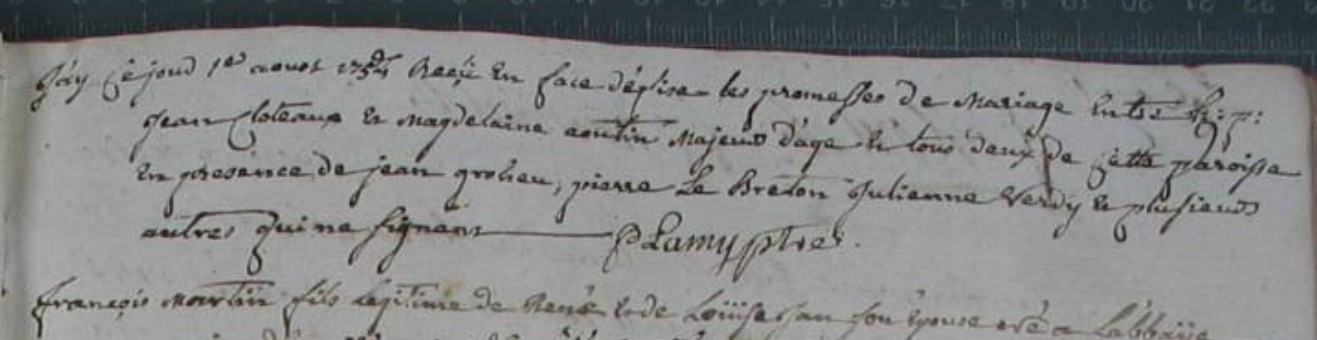 J'ay ce jour 1er aoust 1754 Receu En face d'église les promesses de Mariage Entre h: p:
Jean Cloteaux et Magdelaine aoustin Majeurs d'age et tous deux de cette paroisse
En presence de jean groleu, pierre Le Breton Julienne Verdy et plusieurs
autres qui ne signent P Lamy ptre.
françois Martin fils legitime de René et de Loüise jan son Epouse né a Labbaÿe